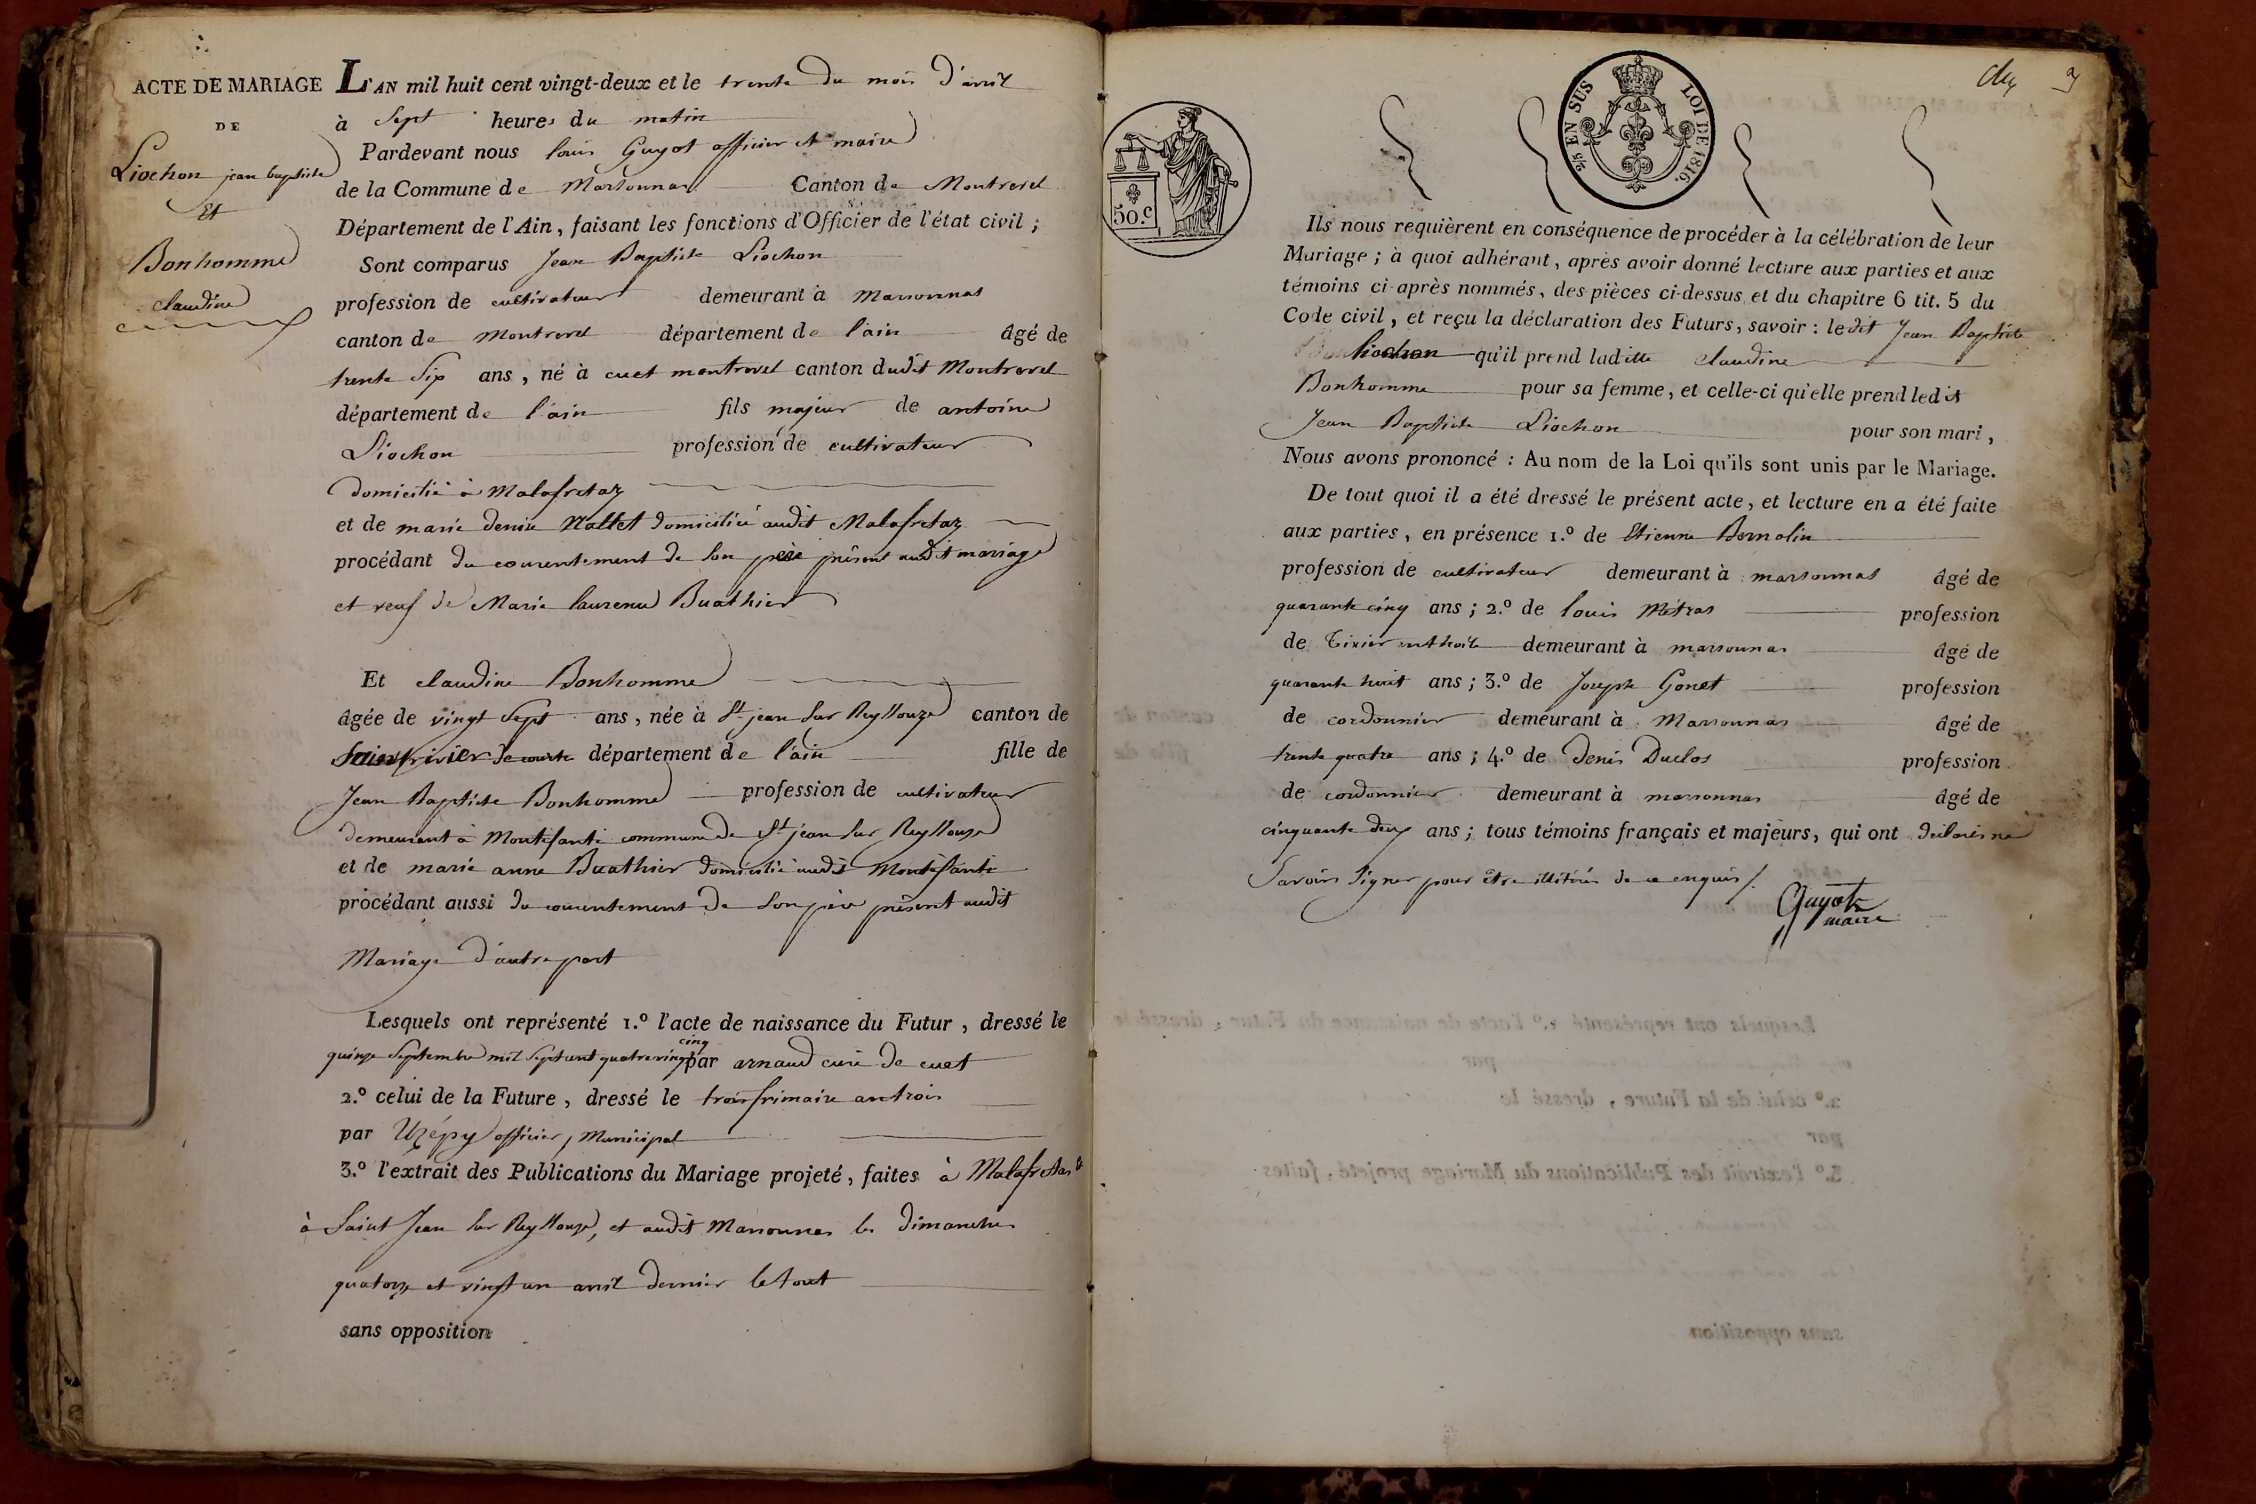 ACTE DE MARIAGE
DE
Liochon jean baptiste
Et
Bonhomme
claudine
L'AN mil huit cent vingt-deux et le trente du mois d'avril
à Sept heures du matin
Pardevant nous louis Guyot officier et maire
de la Commune de Marsonnas Canton de Montrevel
Département de l'Ain, faisant les fonctions d'Officier de l'état civil ;
Sont comparus Jean Baptiste Liochon
profession de cultivateur demeurant à Marsonnas
canton de Montrevel département de l'ain âgé de
trente Six ans, né à cuet montrevel canton dudit Montrevel
département de l'ain fils majeur de antoine
Liochon profession de cultivateur
domicilié à Malafretaz
et de marie denise Nallet domiciliée audit Malafretaz
procédant du consentement de Son père présent audit mariage
et veuf de Marie laurence Buathier
Et claudine Bonhomme
âgée de vingt Sept ans, née à St jean Sur Reyssouze canton de
Saint trivier de courte département de l'ain fille de
Jean Baptiste Bonhomme profession de cultivateur
demeurant à Montefanti commune de St jean Sur Reyssouze
et de marie anne Buathier domiciliée audit Montefanti
procédant aussi du consentement de Son père présent audit
Mariage d'autre part
Lesquels ont représenté 1.º l'acte de naissance du Futur, dressé le
quinze Septembre mil Sept cent quatre vingt cinq par arnaud curé de cuet
2.º celui de la Future, dressé le trois frimaire an trois
par Uzépy officier Municipal
3.º l'extrait des Publications du Mariage projeté, faites à Malafretaz
à Saint Jean Sur Reyssouze, et audit Marsonnas les dimanches
quatorze et vingt un avril dernier le tout
sans opposition
50.c
2/5 EN SUS LOI DE 1816.
Ils nous requièrent en conséquence de procéder à la célébration de leur
Mariage ; à quoi adhérant, après avoir donné lecture aux parties et aux
témoins ci-après nommés, des pièces ci-dessus et du chapitre 6 tit. 5 du
Code civil, et reçu la déclaration des Futurs, savoir : ledit Jean Baptiste
Liochon qu'il prend ladite claudine
Bonhomme pour sa femme, et celle-ci qu'elle prend ledit
Jean Baptiste Liochon pour son mari,
Nous avons prononcé : Au nom de la Loi qu'ils sont unis par le Mariage.
De tout quoi il a été dressé le présent acte, et lecture en a été faite
aux parties, en présence 1.º de Etienne Bernolin
profession de cultivateur demeurant à marsonnas âgé de
quarante cinq ans ; 2.º de louis Métras profession
de Tixier en thoile demeurant à marsonnas âgé de
quarante huit ans ; 3.º de Joseph Gonet profession
de cordonnier demeurant à Marsonnas âgé de
trente quatre ans ; 4.º de denis Duclos profession
de cordonnier demeurant à marsonnas âgé de
cinquante deux ans ; tous témoins français et majeurs, qui ont déclarés ne
Savoir Signer pour être illitérés de ce enquis /.
Guyot
maire